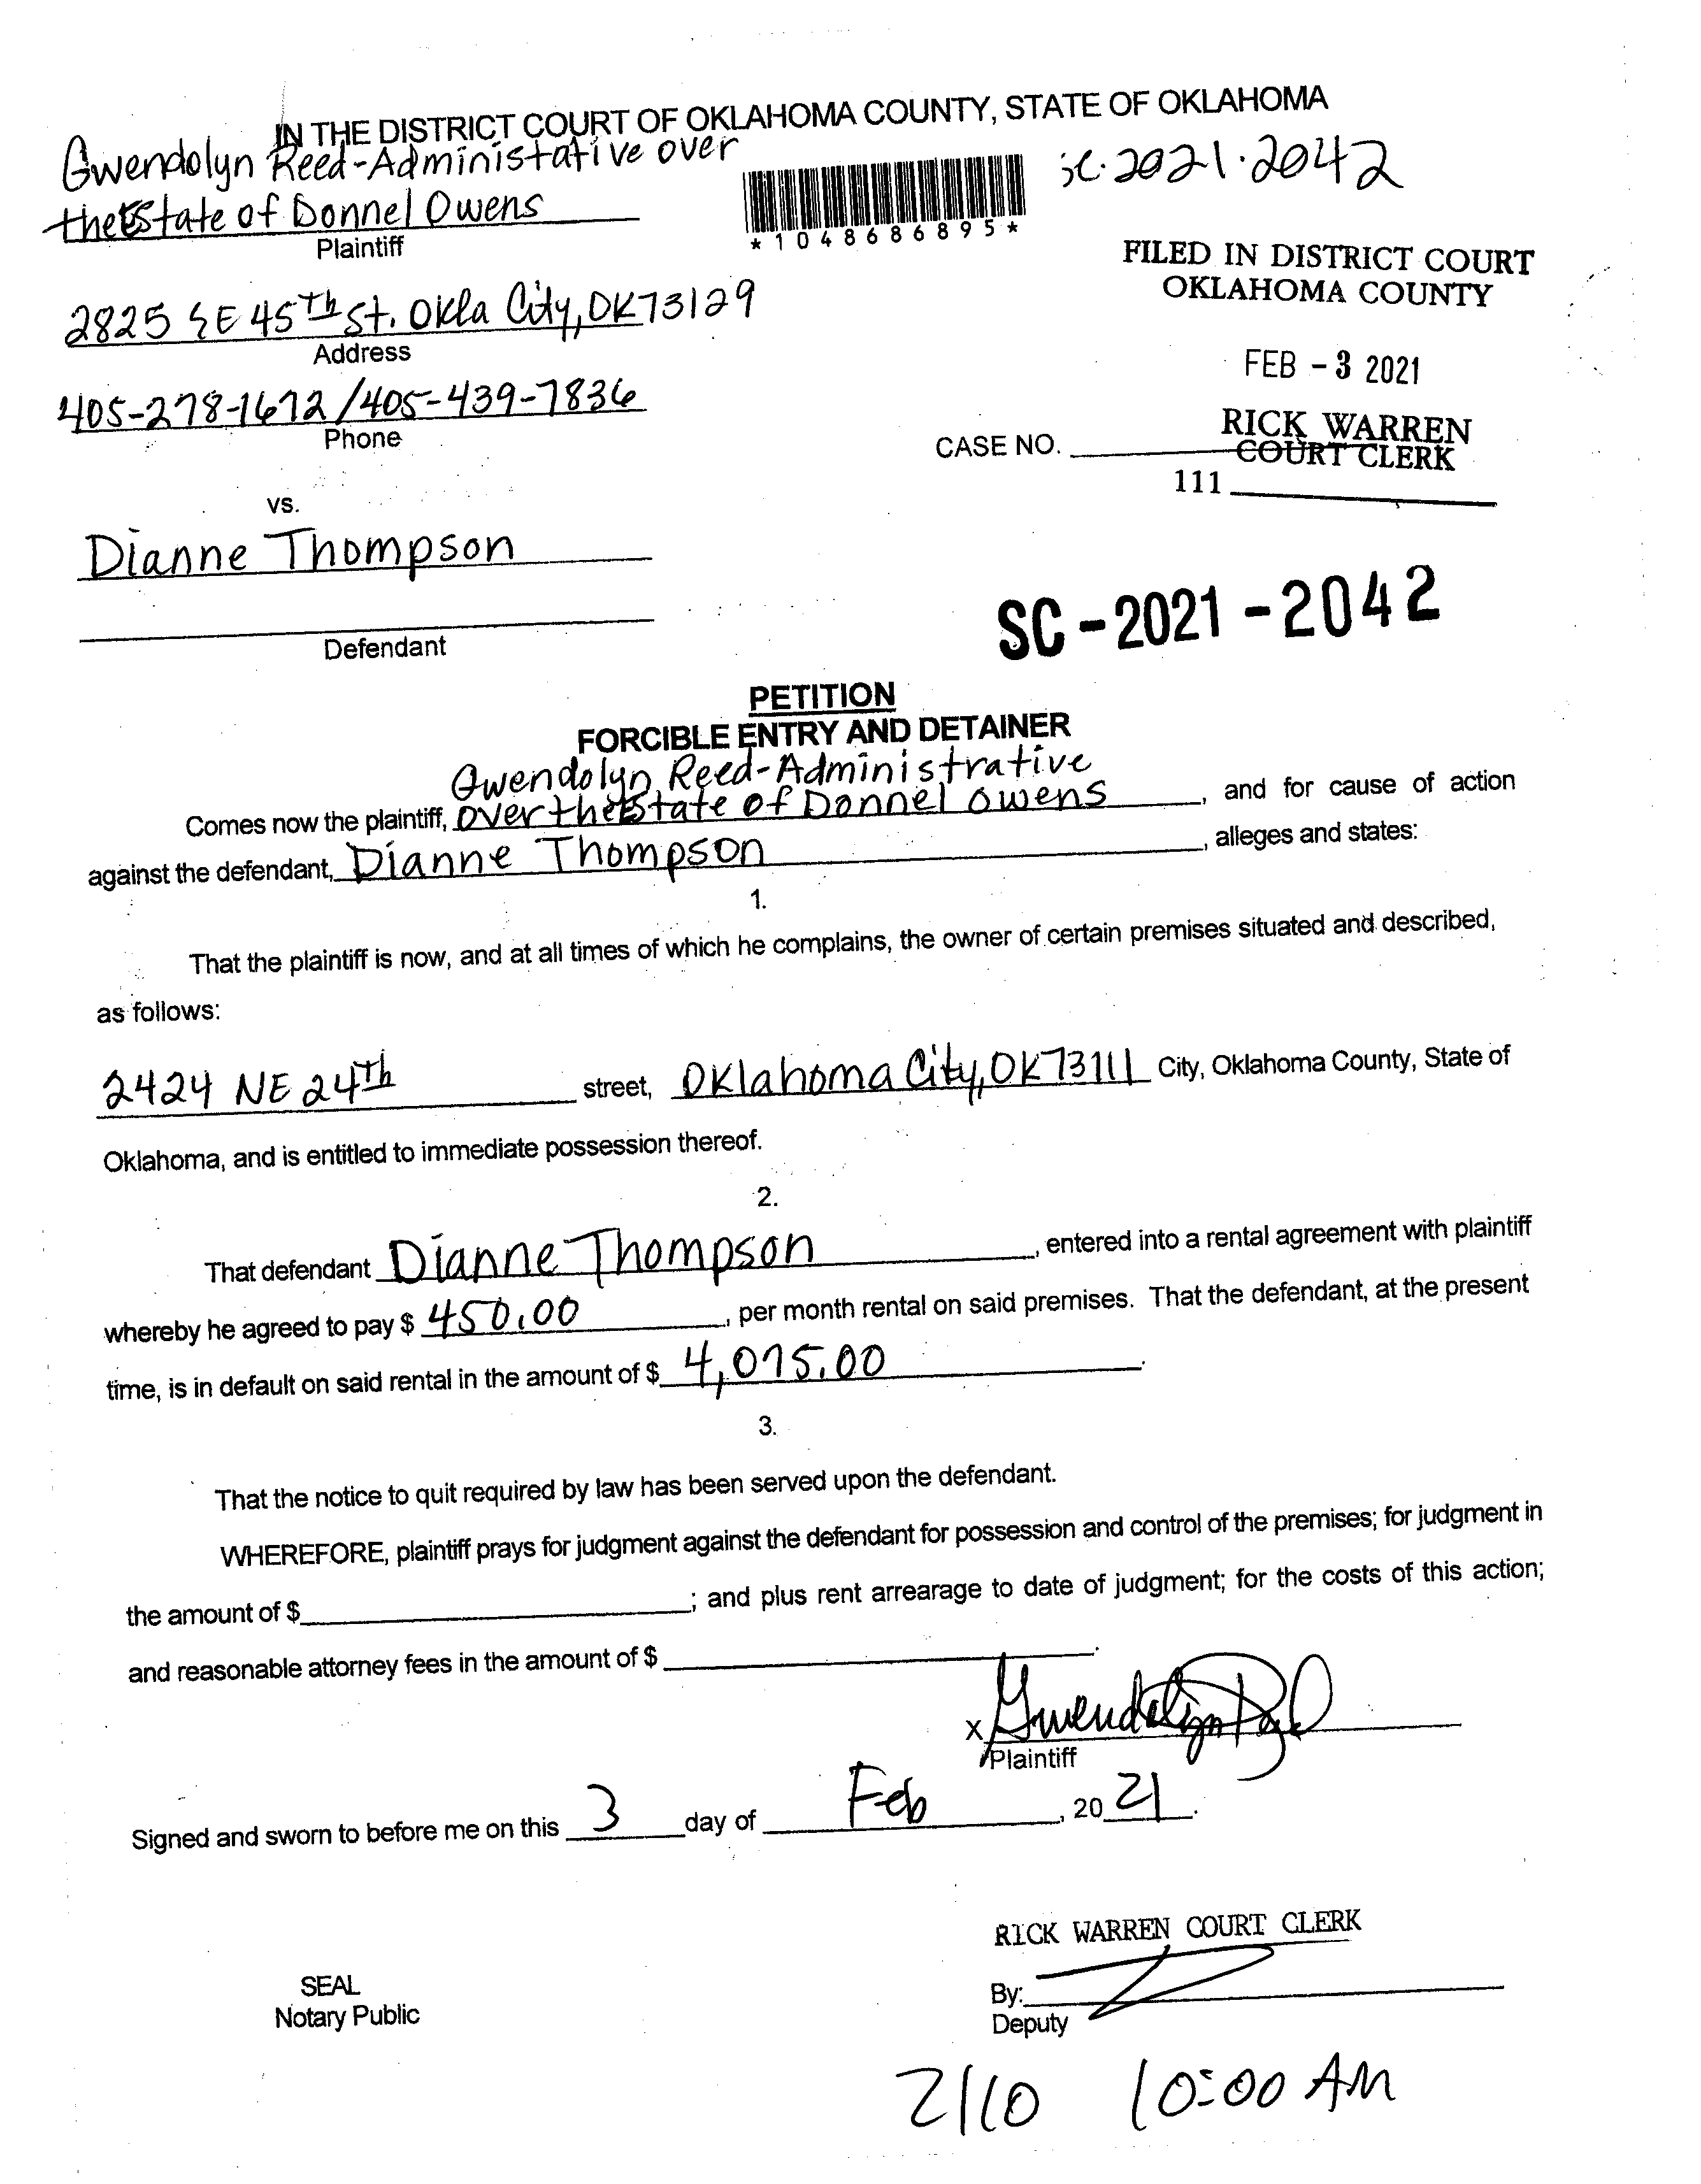 IN THE DISTRICT COURT OF OKLAHOMA COUNTY, STATE OF OKLAHOMA
Gwendolyn Reed-Administative over
the Estate of Donnel Owens
Plaintiff
*1048686895*
sc.2021.2042
FILED IN DISTRICT COURT
OKLAHOMA COUNTY
2825 SE 45th St. Okla City, OK 73129
Address
FEB - 3 2021
405-278-1672 / 405-439-7836
Phone
RICK WARREN
COURT CLERK
CASE NO.
111
vs.
Dianne Thompson
Defendant
SC - 2021 - 2042
PETITION
FORCIBLE ENTRY AND DETAINER
Gwendolyn Reed-Administrative
Comes now the plaintiff, over the Estate of Donnel Owens, and for cause of action
against the defendant, Dianne Thompson, alleges and states:
1.
That the plaintiff is now, and at all times of which he complains, the owner of certain premises situated and described,
as follows:
2424 NE 24th street, Oklahoma City, OK 73111 City, Oklahoma County, State of
Oklahoma, and is entitled to immediate possession thereof.
2.
That defendant Dianne Thompson, entered into a rental agreement with plaintiff
whereby he agreed to pay $ 450.00, per month rental on said premises. That the defendant, at the present
time, is in default on said rental in the amount of $ 4,075.00.
3.
That the notice to quit required by law has been served upon the defendant.
WHEREFORE, plaintiff prays for judgment against the defendant for possession and control of the premises; for judgment in
the amount of $ ; and plus rent arrearage to date of judgment; for the costs of this action;
and reasonable attorney fees in the amount of $ .
X Gwendolyn Reed
Plaintiff
Signed and sworn to before me on this 3 day of Feb, 20 21.
RICK WARREN COURT CLERK
SEAL
Notary Public
By:
Deputy
2/10 10:00 AM